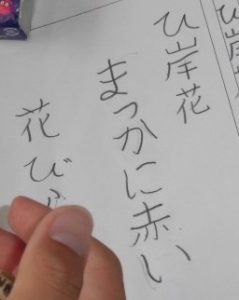 ひ岸花
まっかに赤い
花び